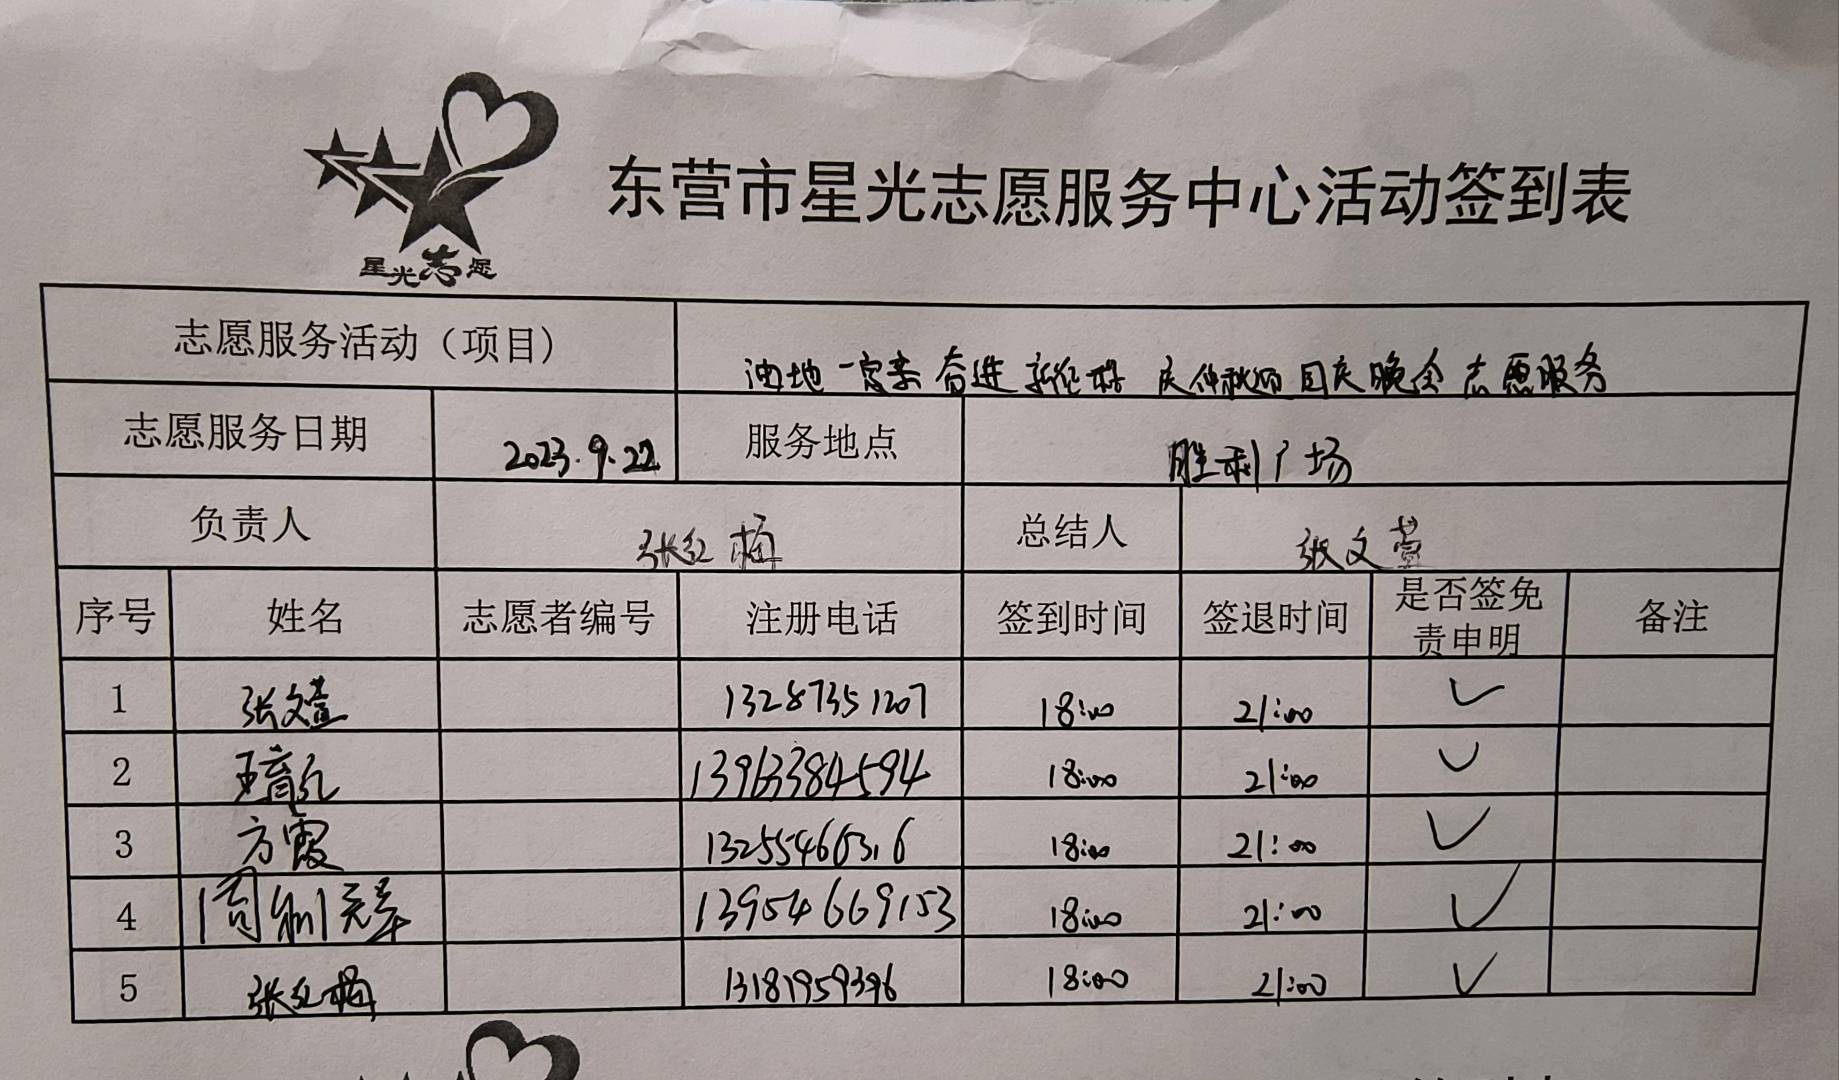 星光志愿
东营市星光志愿服务中心活动签到表
志愿服务活动（项目） 油地一家亲 奋进新征程 庆仲秋迎国庆晚会志愿服务
志愿服务日期 2023.9.22 服务地点 胜利广场
负责人 张红梅 总结人 张文萱
序号 姓名 志愿者编号 注册电话 签到时间 签退时间 是否签免责申明 备注
1 张文萱 13287351207 18:00 21:00 ✓
2 13963384594 18:00 21:00 ✓
3 方霞 18:00 21:00 ✓
4 13954669153 18:00 21:00 ✓
5 张红梅 13181959396 18:00 21:00 ✓